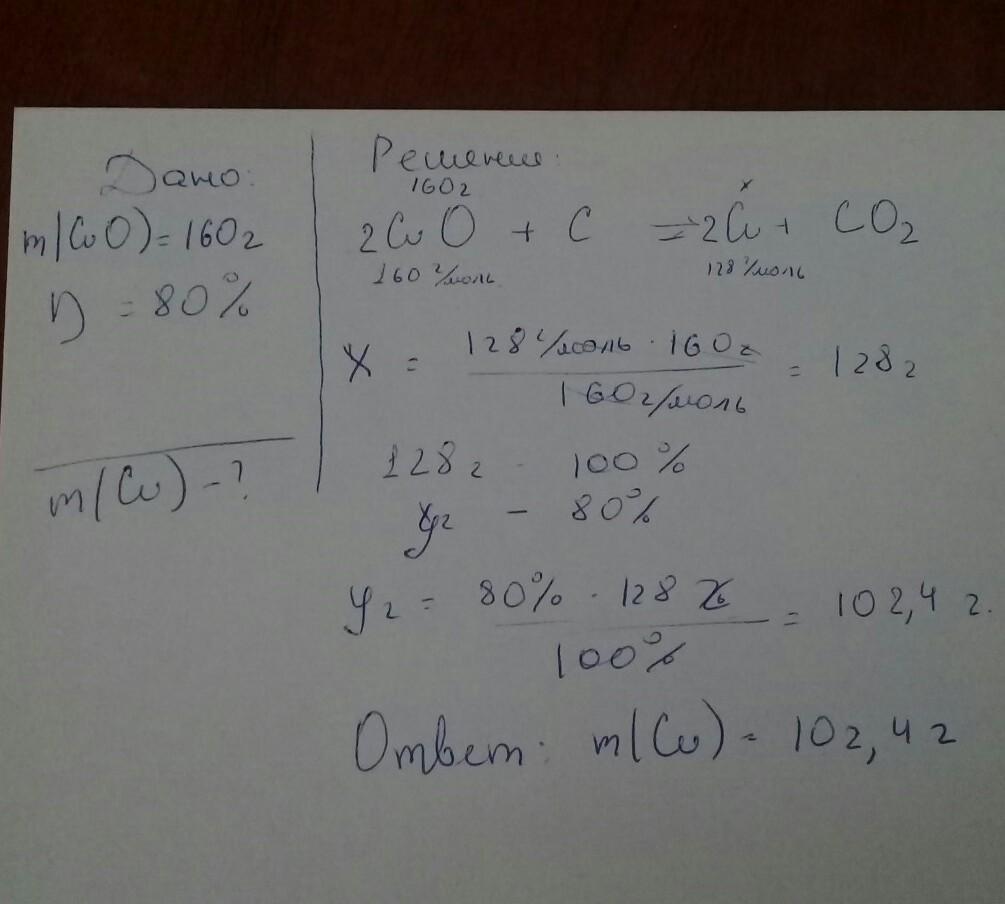 Дано:
m(CuO) = 160г
η = 80%
m(Cu) - ?
Решение:
160г x
2CuO + C = 2Cu + CO2
160 г/моль 128 г/моль
x = 128 г/моль · 160г / 160г/моль = 128 г
128 г - 100 %
y г - 80%
y г = 80% · 128 г / 100% = 102,4 г.
Ответ: m(Cu) = 102,4 г